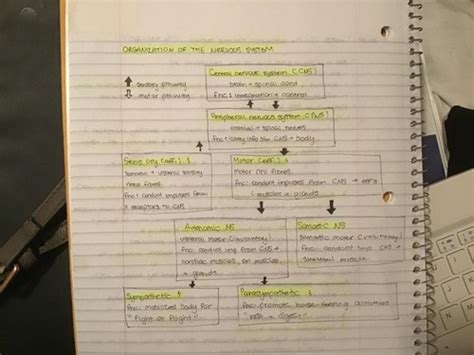 ORGANIZATION OF THE NERVOUS SYSTEM
Central nervous system (CNS)
brain + spinal cord
fnc: integration + control
sensory pathway
motor pathway
Peripheral nervous system (PNS)
cranial + spinal nerves
fnc: carry info CNS → body
Sensory (aff.)
nerve fibres
fnc: conduct impulses from
receptors to CNS
Motor (eff.)
Motor nrv fibres
fnc: conduct impulses from CNS →
(muscles + glands
Autonomic NS
visceral motor (involuntary)
fnc: conduct impulses from CNS →
cardiac muscles, muscles
+ glands
Somatic NS
somatic motor (voluntary)
fnc: conduct CNS →
skeletal muscle
Sympathetic
fnc: mobilizes body for
"Fight or flight"
Parasympathetic
fnc: promotes house-keeping
"rest + digest"